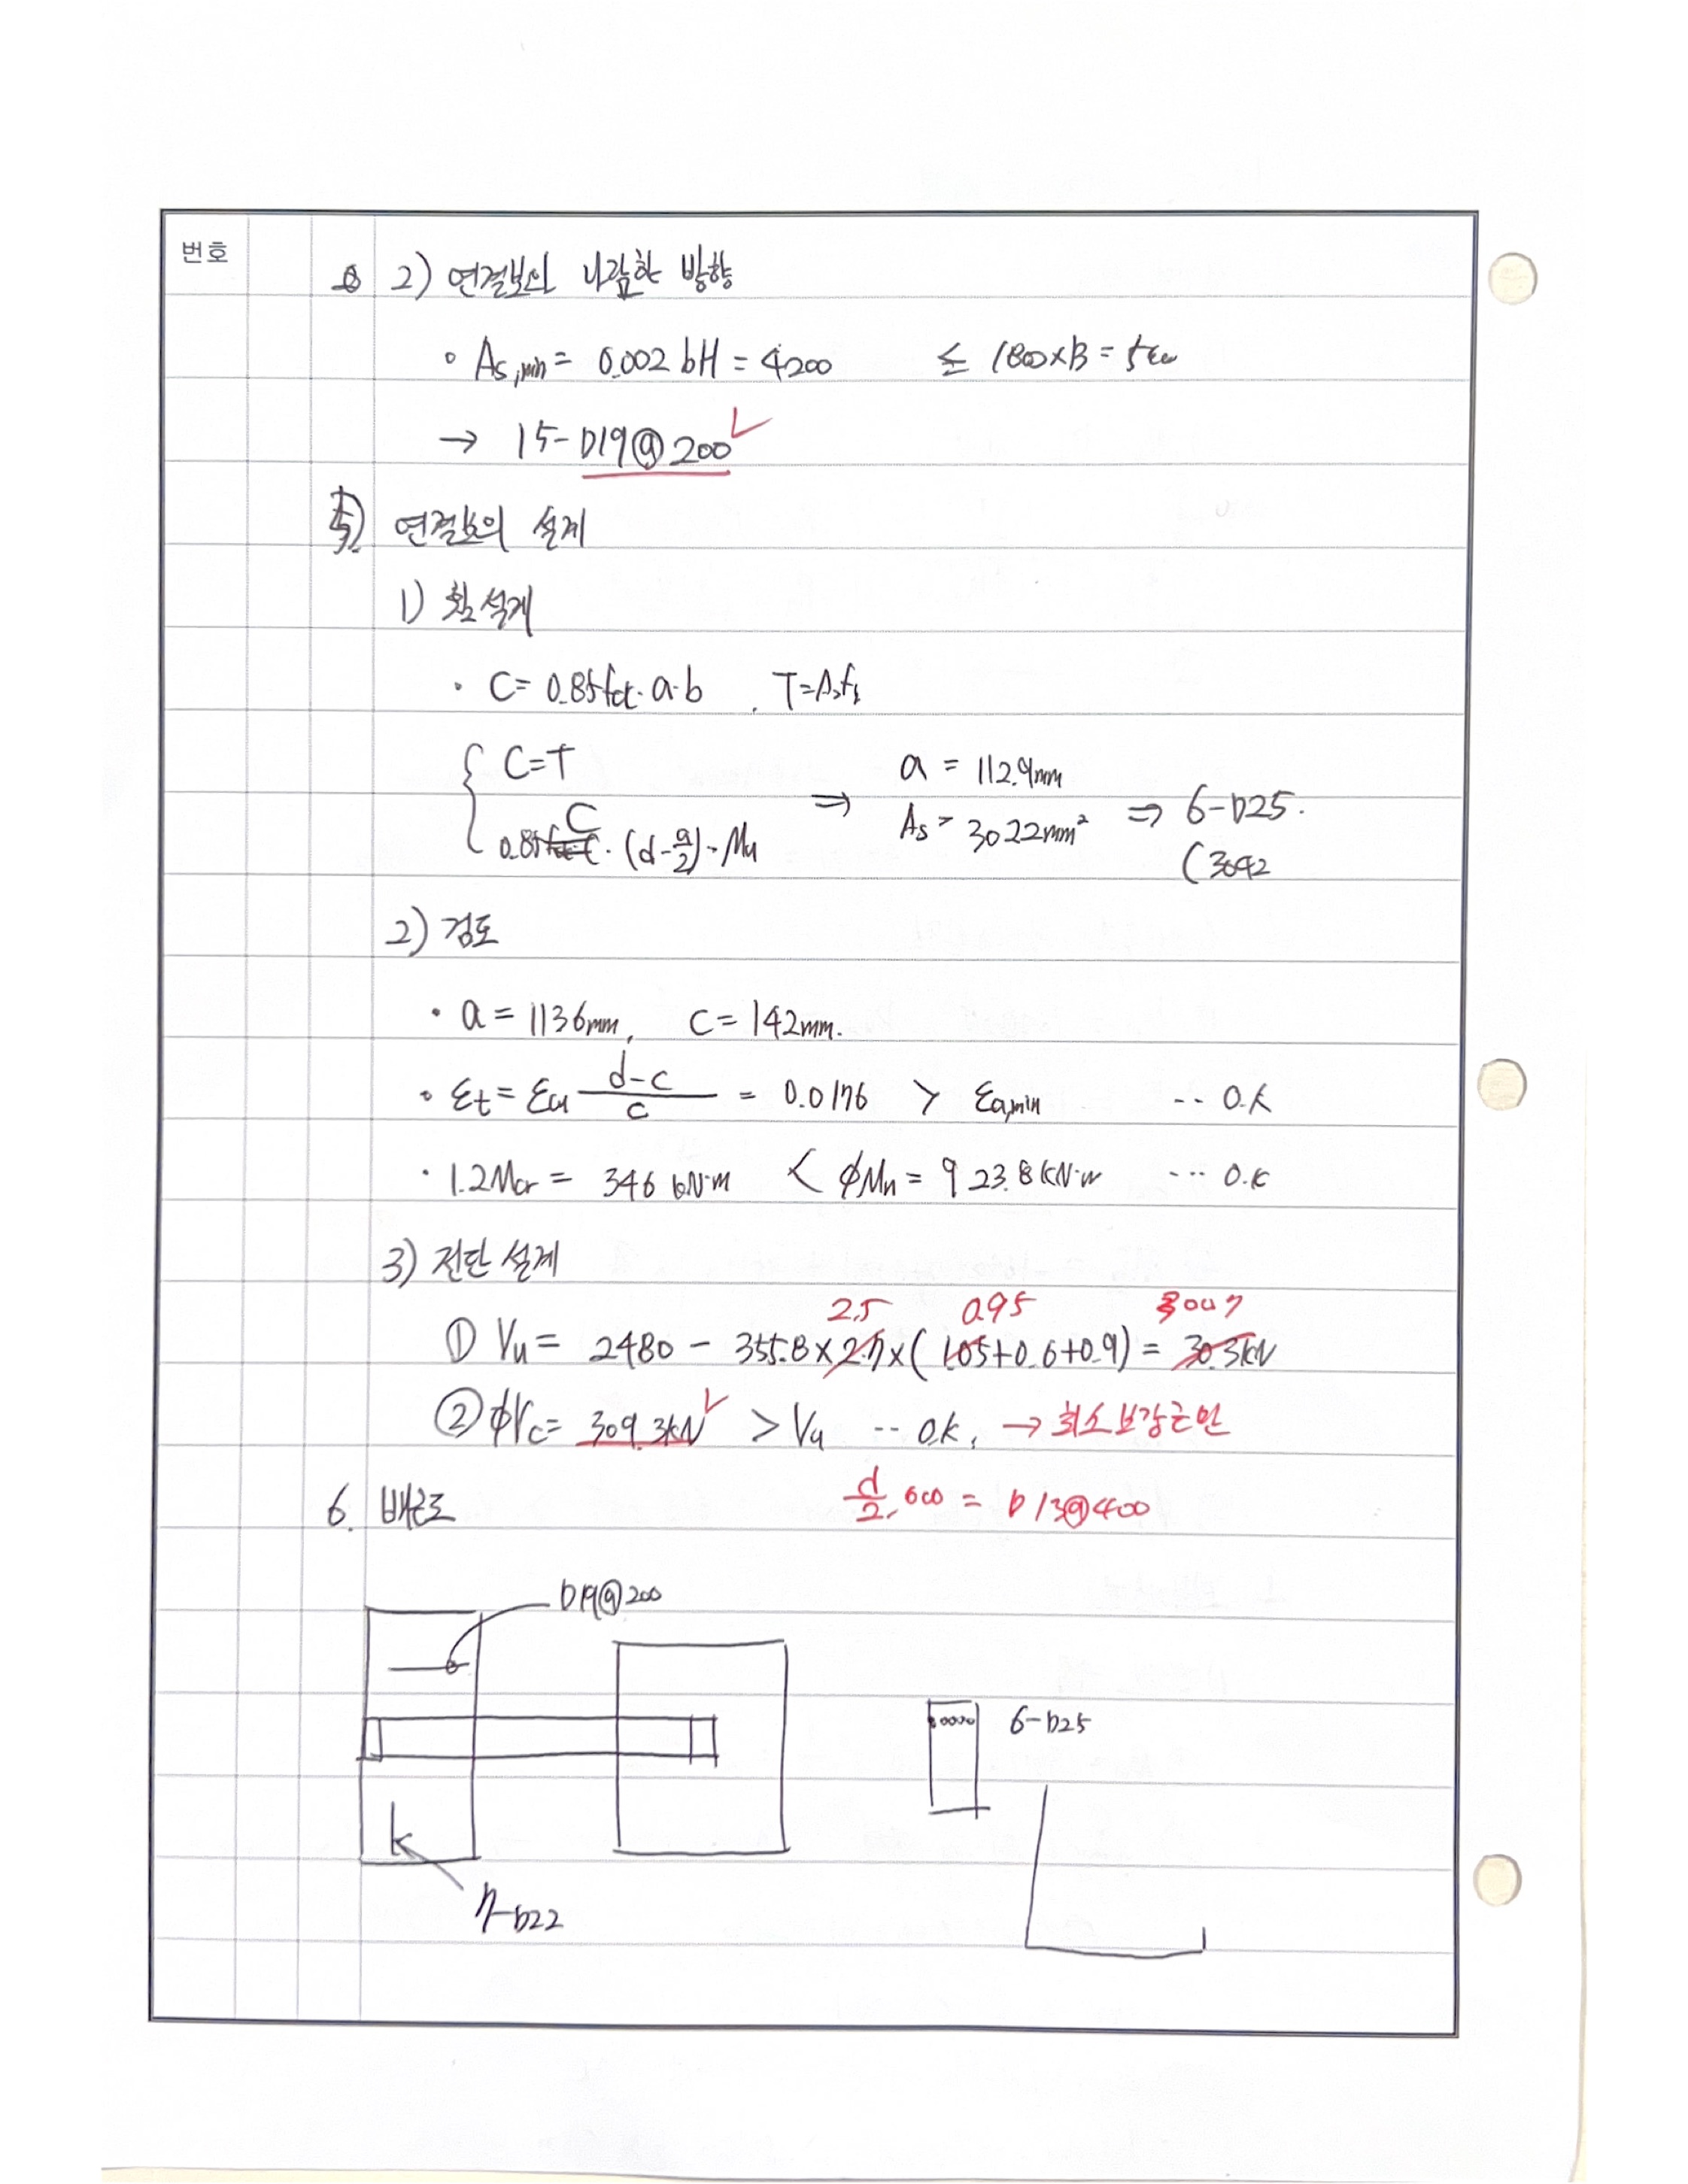 번호
2) 연결보와 나란한 방향
• As,min = 0.002 bH = 4200 ≤ 1800×B =
→ 15-D19@200 ✓
5) 연결보의 설계
1) 휨설계
• C= 0.85fck·a·b , T=Asfy
{ C=T
C·(d-a/2)=Mu ⇒ a = 112.9mm
As = 3022mm² ⇒ 6-D25.
(3042
2) 검토
• a = 113.6mm, C = 142mm.
• εt = εcu (d-c)/c = 0.0176 > εa,min -- O.K
• 1.2Mcr = 346 kN·m < φMn = 923.8 kN·m ··· O.K
3) 전단 설계
2.5 0.95
① Vu = 2480 - 355.8×2.7×(1.05+0.6+0.9) = 30.3kN
② φVc = 309.3kN ✓ > Vu -- O.K, → 최소보강근만
6. 배근도
d/2, 600 = D13@400
D19@200
6-D25
7-D22